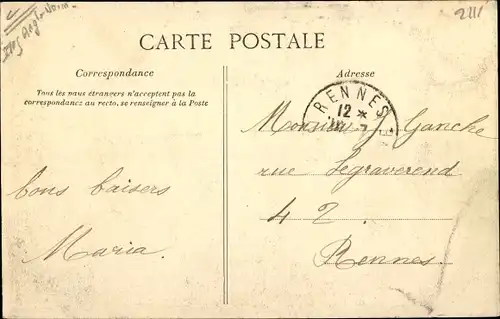 2111
CARTE POSTALE
Correspondance
Adresse
Tous les pays étrangers n'acceptent pas la
correspondance au recto, se renseigner à la Poste
RENNES
12 *
Monsieur J Ganche
rue Legraverend
bons baisers
4 2.
Maria.
Rennes.